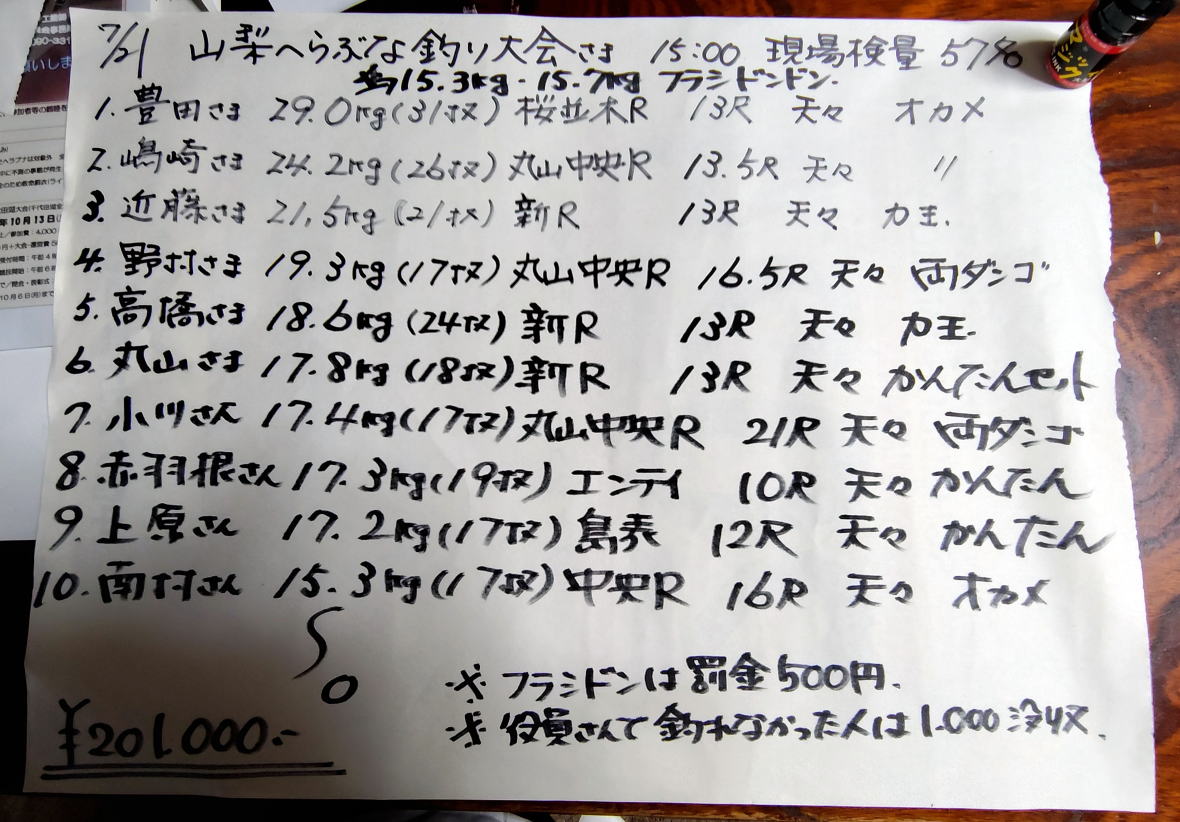 7/21 山梨へらぶな釣り大会さま 15:00 現場検量 57名
15.3kg・15.7kg フラシドンドン.
1. 豊田さま 29.0kg(31枚) 桜並木R 13R 天々 オカメ
2. 嶋崎さま 24.2kg(26枚) 丸山中央R 13.5R 天々 〃
3. 近藤さま 21.5kg(21枚) 新R 13R 天々 力玉.
4. 野村さま 19.3kg(17枚) 丸山中央R 16.5R 天々 両ダンゴ
5. 高橋さま 18.6kg(24枚) 新R 13R 天々 力玉.
6. 丸山さま 17.8kg(18枚) 新R 13R 天々 かんたんセット
7. 小川さん 17.4kg(17枚) 丸山中央R 21R 天々 両ダンゴ
8. 赤羽根さん 17.3kg(19枚) エンテイ 10R 天々 かんたん
9. 上原さん 17.2kg(17枚) 島表 12R 天々 かんたん
10. 南村さん 15.3kg(17枚) 中央R 16R 天々 オカメ
〜
0
※ フラシドンは罰金500円.
※ 役員さんで釣れなかった人は1.000没収.
¥201.000.-
マジック
INK
年10月13日
10月6日(月)まで